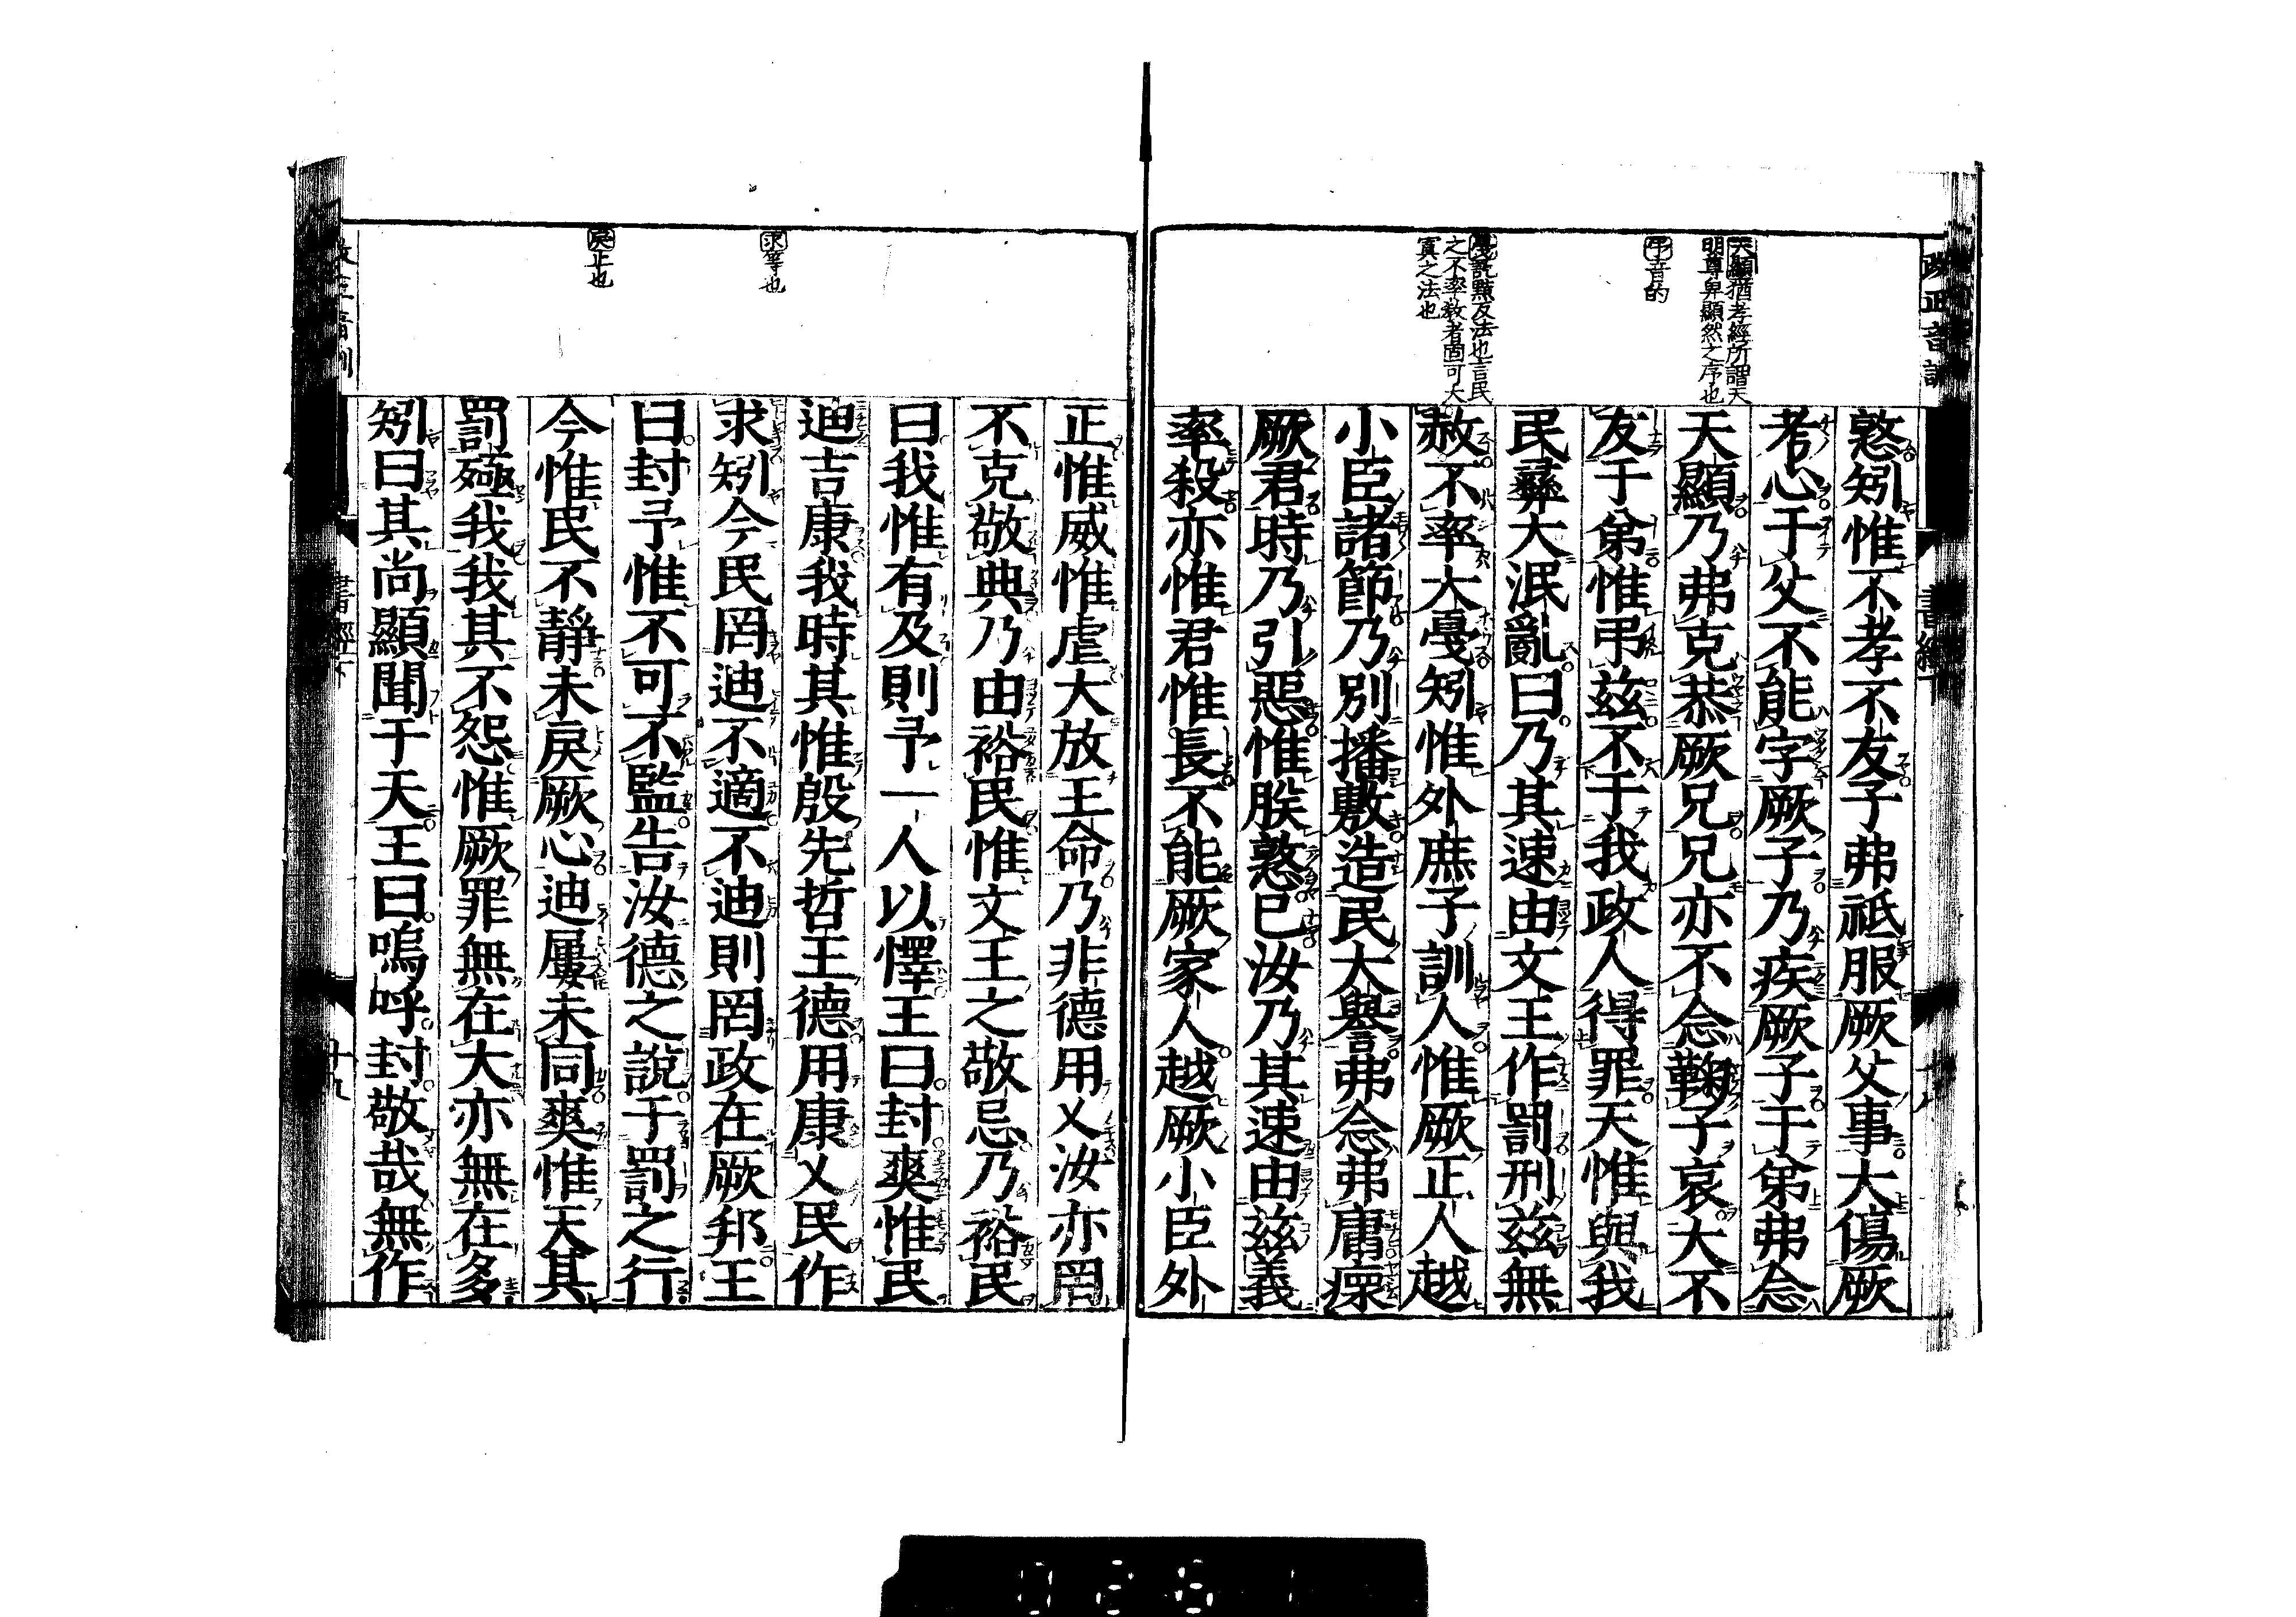 天顯猶孝經所謂天
明尊卑顯然之序也
弔音的
戞訖黠反法也言民
之不率教者固可大
寘之法也
憝矧惟不孝不友子弗祗服厥父事大傷厥
考心于父不能字厥子乃疾厥子于弟弗念
天顯乃弗克恭厥兄兄亦不念鞠子哀大不
友于弟惟弔茲不于我政人得罪天惟與我
民彝大泯亂曰乃其速由文王作罰刑茲無
赦不率大戞矧惟外庶子訓人惟厥正人越
小臣諸節乃別播敷造民大譽弗念弗庸瘝
厥君時乃引惡惟朕憝已汝乃其速由茲義
率殺亦惟君惟長不能厥家人越厥小臣外
求等也
戾止也
正惟威惟虐大放王命乃非德用乂汝亦罔
不克敬典乃由裕民惟文王之敬忌乃裕民
曰我惟有及則予一人以懌王曰封爽惟民
迪吉康我時其惟殷先哲王德用康乂民作
求矧今民罔迪不適不迪則罔政在厥邦王
曰封予惟不可不監告汝德之說于罰之行
今惟民不靜未戾厥心迪屢未同爽惟天其
罰殛我我其不怨惟厥罪無在大亦無在多
矧曰其尚顯聞于天王曰嗚呼封敬哉無作
書經下
十九